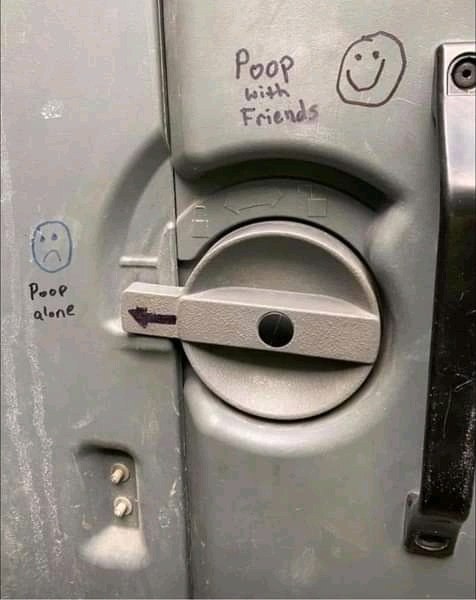 Poop
with
Friends
Poop
alone